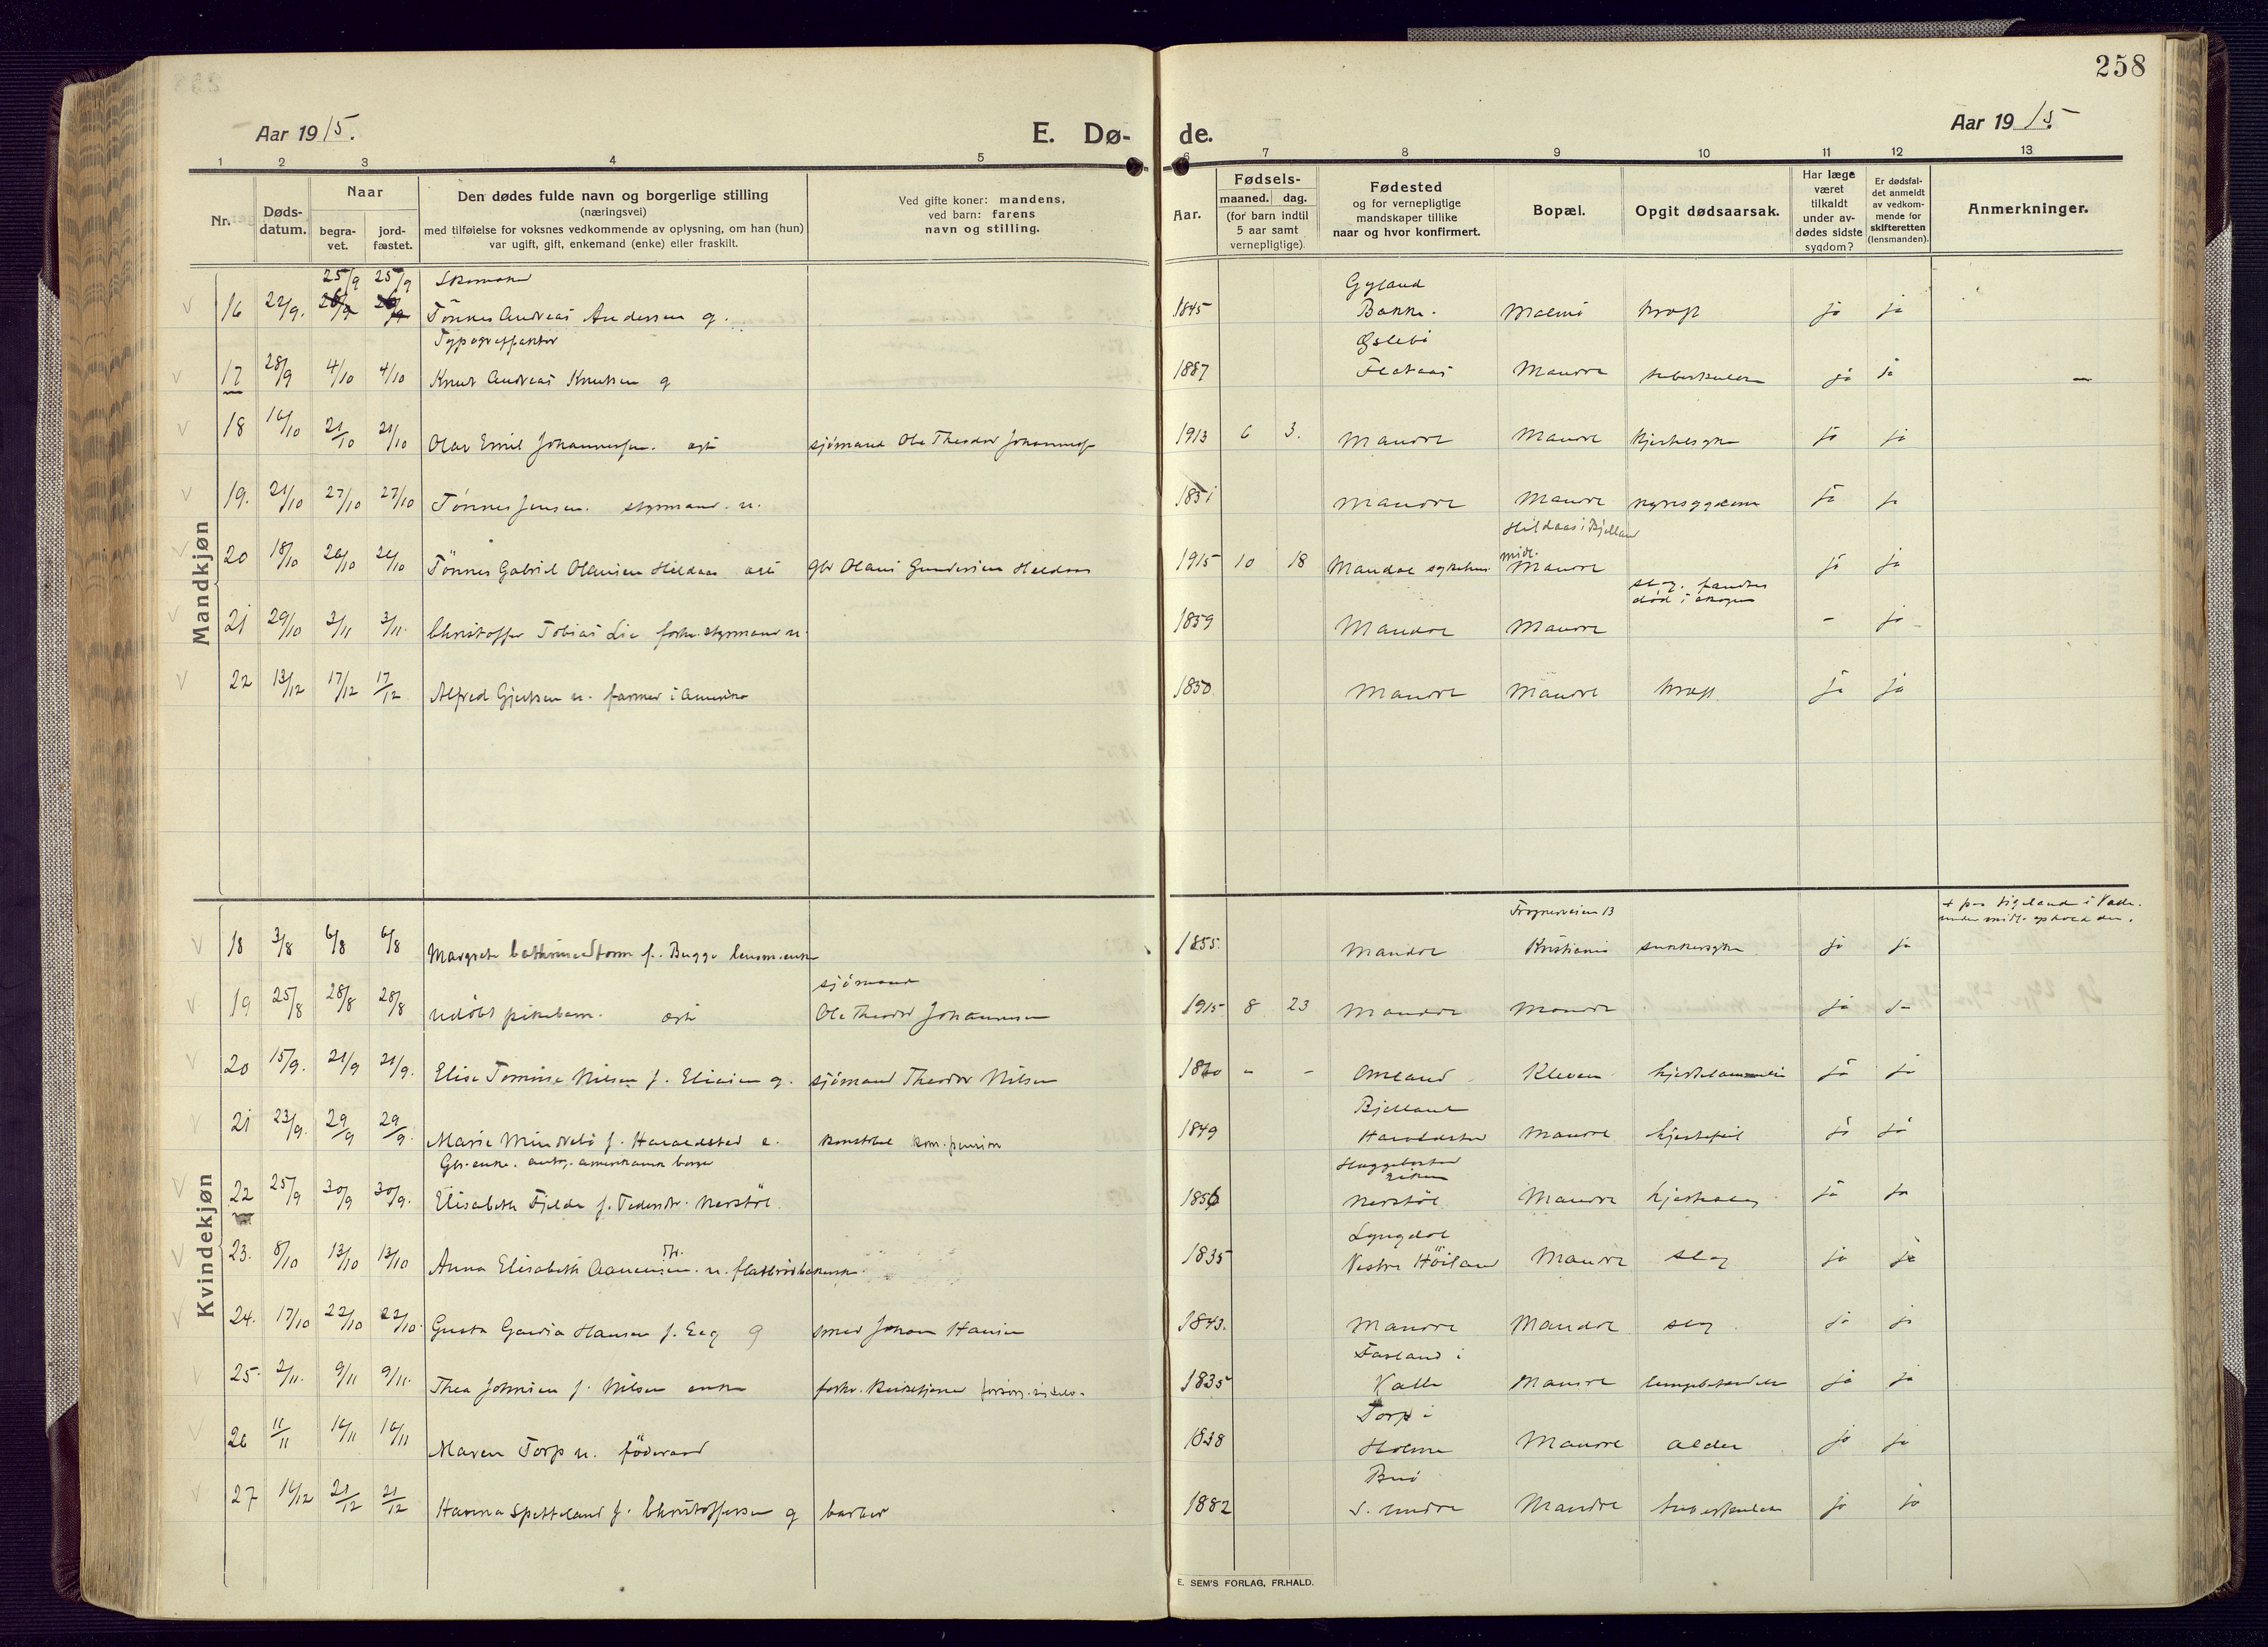 258
Aar 1915. E. Dø- de. Aar 1915.
1 2 3 4 5 6 7 8 9 10 11 12 13
Nr. Døds-datum. Naar begra-vet. jord-fæstet. Den dødes fulde navn og borgerlige stilling (næringsvei) med tilføielse for voksnes vedkommende av oplysning, om han (hun) var ugift, gift, enkemand (enke) eller fraskilt. Ved gifte koner: mandens, ved barn: farens navn og stilling. Aar. Fødsels- maaned. dag. (for barn indtil 5 aar samt vernepligtige). Fødested og for vernepligtige mandskaper tillike naar og hvor konfirmert. Bopæl. Opgit dødsaarsak. Har læge været tilkaldt under av-dødes sidste sygdom? Er dødsfal-det anmeldt av vedkom-mende for skifteretten (lensmanden). Anmerkninger.
Mandkjøn
25/9 25/9 Skomaker Gyland
16 22/9. Tönnes Andreas Andersen g. 1845 Bakke. Malmö kræft ja ja
Øslebö
17 28/9 4/10 4/10 Knut Andreas Knutsen g 1887 Flataas Mandal tuberkulose ja ja
18 16/10 21/10 21/10 Olav Emil Johannessen. egte sjömand Ole Theodor Johannessen 1913 6 3. Mandal Mandal hjertesyke ja ja
19. 21/10 27/10 27/10 Tönnes Jensen. styrmand. u. 1851 Mandal Mandal nyresygdom ja ja
Hildaas i Bjelland
20 18/10 20/10 20/10 Tönnes Gabriel Olausen Hildaas egte gbr Olaus Gundersen Hildaas 1915 10 18 Mandal sykehus midl. Mandal ja ja
slag. fandtes död i skogen
21 29/10 3/11 3/11. Christoffer Tobias Lie forhv. styrmand u. 1859 Mandal Mandal - ja
22 13/12 17/12 17/12 Alfred Gjertsen u. farmer i Amerika 1850 Mandal Mandal kræft ja ja
Kvindekjøn
Frognerveien 13 + paa Sigeland i Vadn. under midl. ophold der.
18 3/8 6/8 6/8 Margrete Cathrine Storm f. Bugge lensm.enke 1855. Mandal Kristiania sukkersyke ja ja
sjömand
19 25/8 28/8 28/8 udöbt pikebarn. egte Ole Theodor Johannessen 1915 8 23 Mandal Mandal ja ja
20 15/9. 21/9 21/9. Elise Tomine Nilsen f. Eliasen g. sjömand Theodor Nilsen - - Omland Kleven hjertelammelse ja ja
Bjelland
21 23/9. 29/9 29/9. Marie Mindrebö f. Haraldstad e. konstabel kom. pension 1849 Haraldstad Mandal hjertefeil ja ja
Gbr.enke. antaz. amerikansk borger Hæggebostad Eiken
22 25/9 30/9 30/9. Elisabeth Fjelde f. Tedersdtr. Nerstöl 1856 Nerstöl Mandal hjerteslag ja ja
Lyngdal
23. 8/10 13/10 13/10 Anna Elisabeth Aanensen dtr. u. flatbrödbakerske 1835 Vestre Höiland Mandal slag ja ja
24. 17/10 22/10 22/10. Gusta Hansen f. Eeg g smed Johan Hansen 1843. Mandal Mandal slag ja ja
Fasland i
25. 2/11. 9/11 9/11. Thea Johnsen f. Nilsen enke 1835 Valle Mandal lungebetændelse ja ja
Torp i
26 11/11 16/11 16/11 Maren Torp u. föderaad 1838 Holme Mandal alder ja ja
Buö
27 16/12 21/12 21/12 Hanna Spetteland f. Christoffersen g barber 1882 S. Undal Mandal tuberkulose ja ja
E. SEM'S FORLAG, FR.HALD.